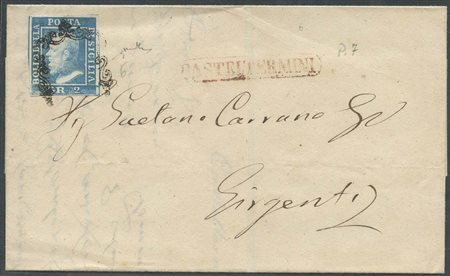 BOLLO DELLA
POSTA
DI SICILIA
GR. 2
P.7
CASTELTERMINI
Gaetano Carrano
Girgenti